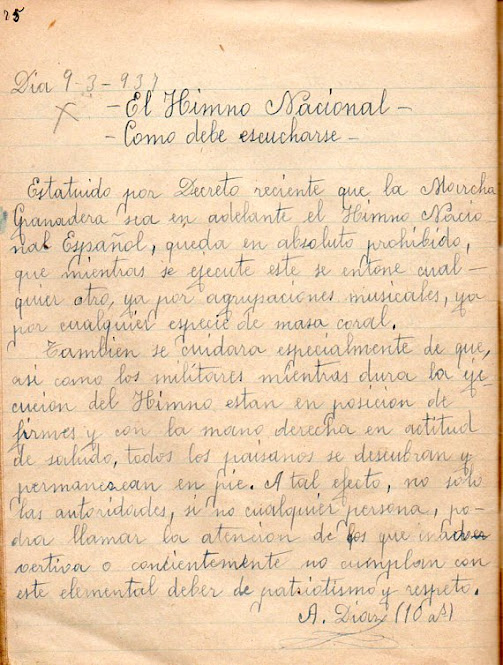 25
Dia 9-3-937
- El Himno Nacional -
- Como debe escucharse -
Estatuido por Decreto reciente que la Marcha
Granadera sea en adelante el Himno Nacio
nal Español, queda en absoluto prohibido,
que mientras se ejecute este se entone cual-
quier otro, ya por agrupaciones musicales, ya
por cualquier especie de masa coral.
Tambien se cuidara especialmente de que,
asi como los militares mientras dura la eje
cucion del Himno estan en posicion de
firmes y con la mano derecha en actitud
de saludo, todos los paisanos se descubran y
permanezcan en pie. A tal efecto, no solo
las autoridades, si no cualquier persona, po-
dra llamar la atencion de los que inad
vertiva o concientemente no cumplan con
este elemental deber de patriotismo y respeto.
A. Diaz (10 as)